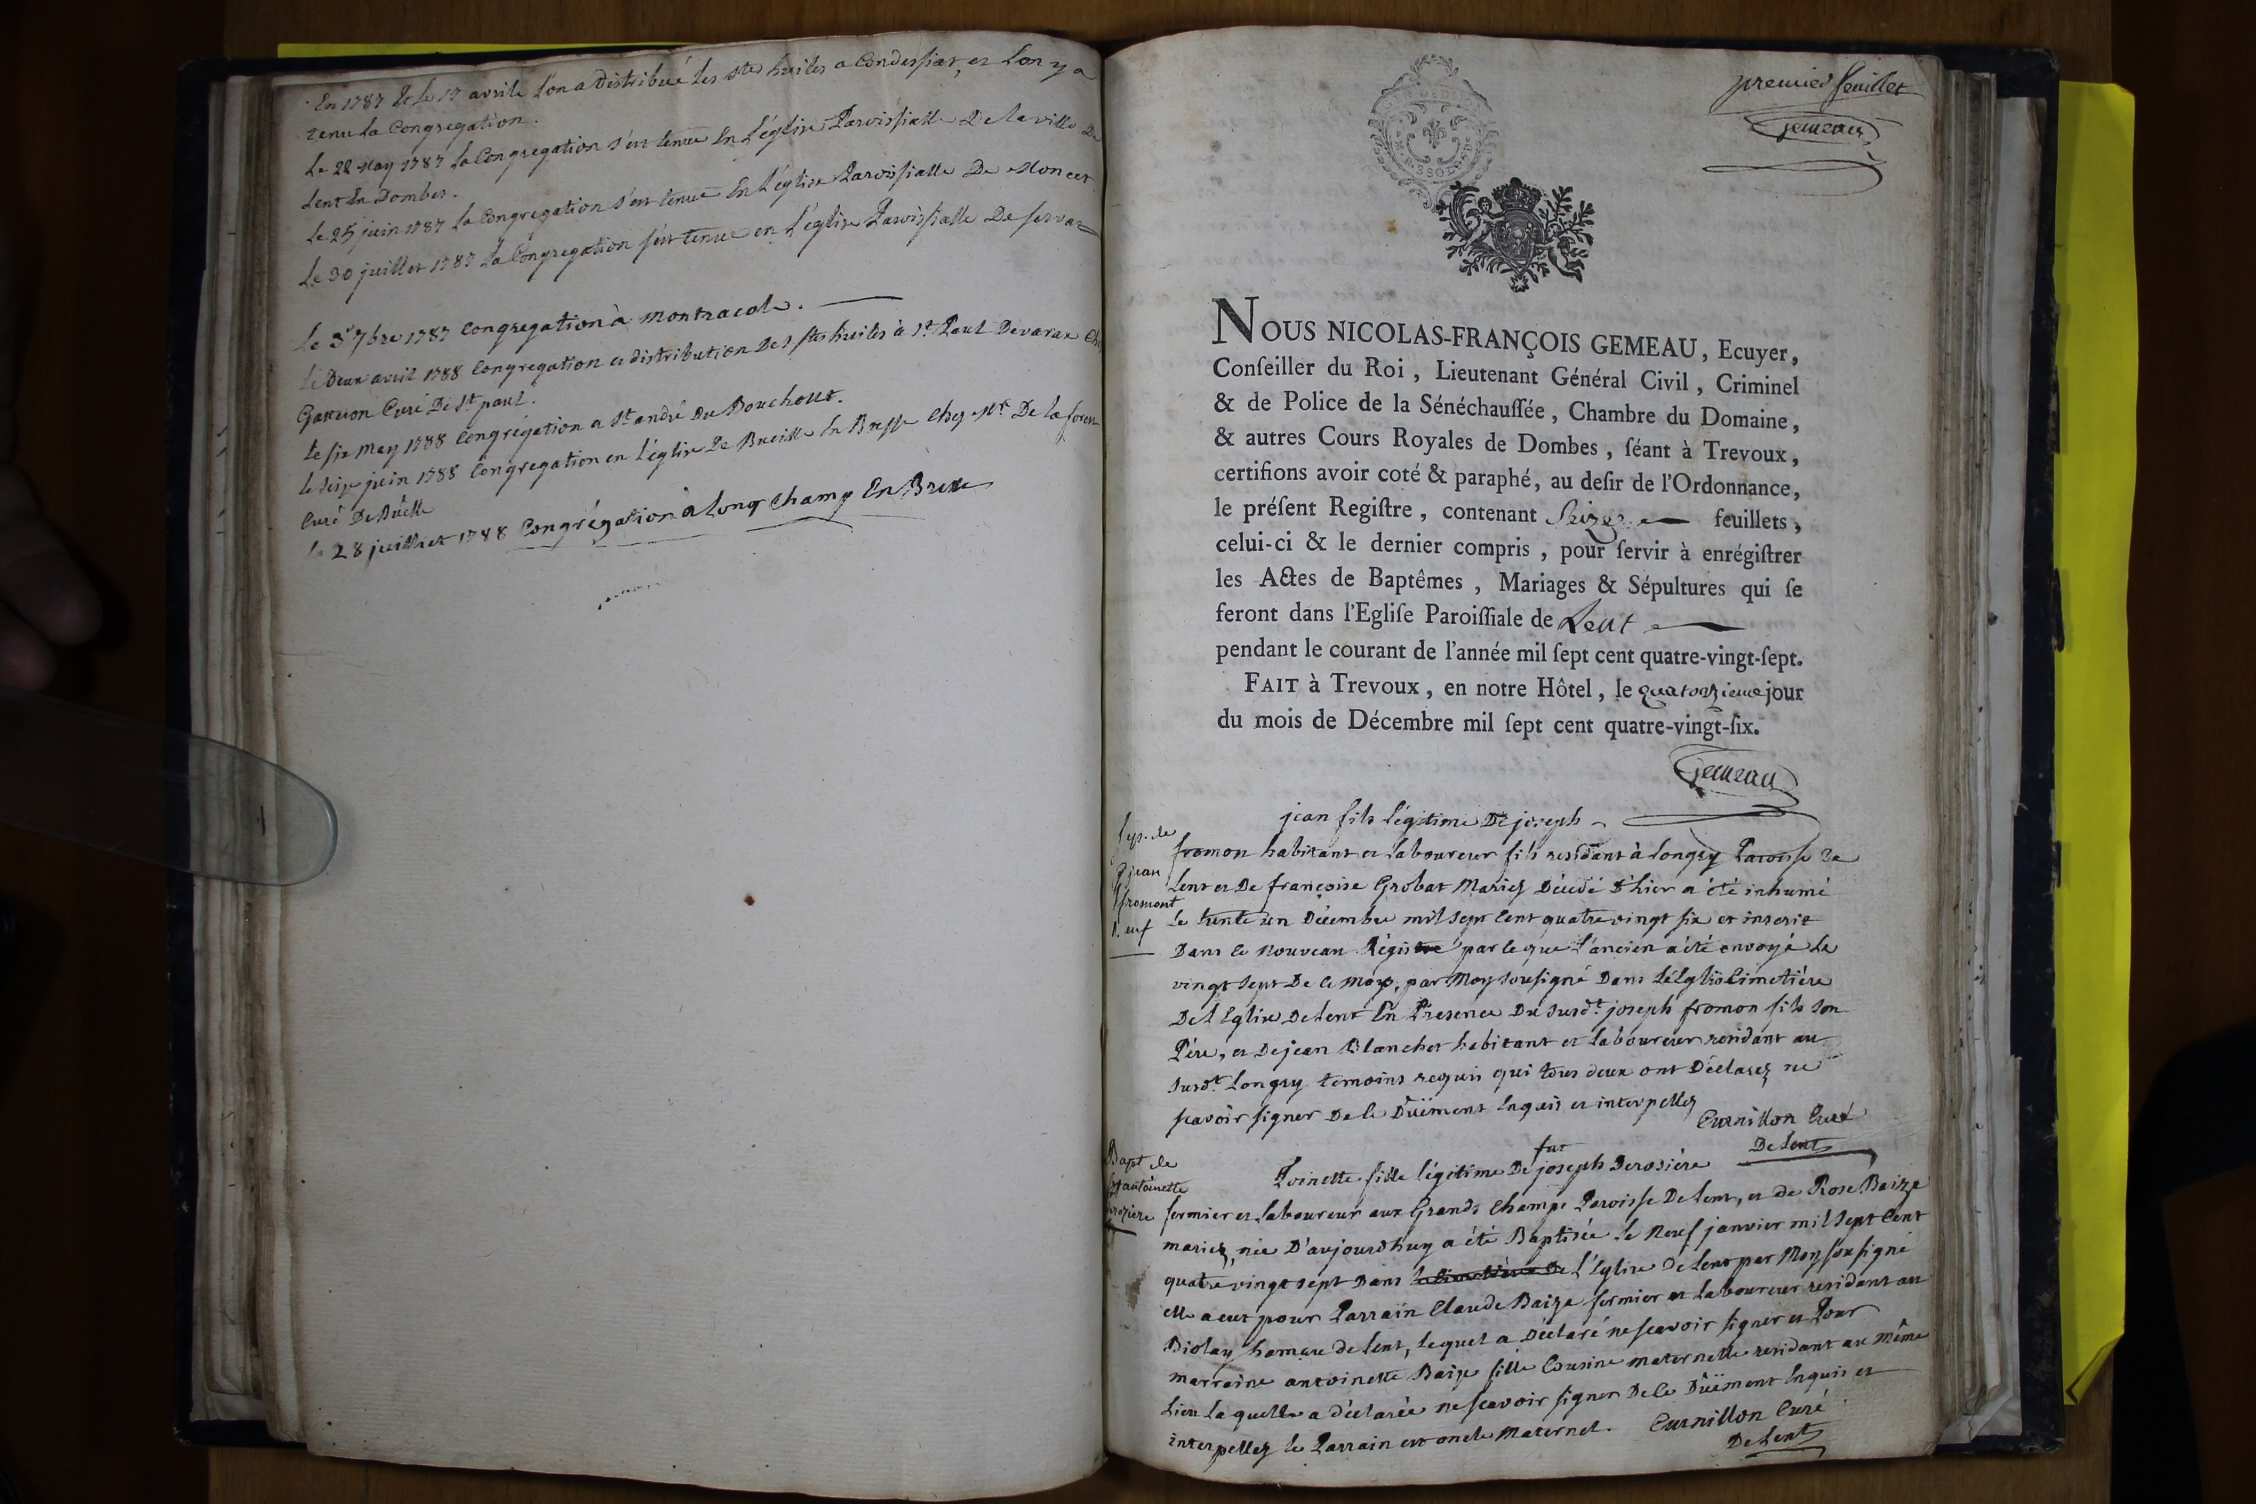 En 1787 Et Le 17 avrile L'on a Distribué Les stes huiles a Condeissiat, et Lon y a
tenu La Congregation.
Le 22 May 1787 La Congregation s'est tenue En L'église Paroissialle De la ville De
Lent En Dombes.
Le 25 juin 1787 La Congregation s'est tenue En L'église Paroissialle De Moncet
Le 30 juillet 1787 La Congregation s'est tenue en L'église Paroissialle De servaz
Le 3e 7bre 1787 Congregation à Montracol.
Le Deux avril 1788 Congregation et distribution Des stes huiles à St Paul Devarax Chez
Curé De St paul.
Le six May 1788 Congrégation a St andré Du Bouchoux.
le seize juin 1788 Congregation en L'église De Buelle En Bresse Chez Mr De la forest
Curé De Buelle
Le 28 juillet 1788 Congrégation à Longchamp En Bresse
premier feuillet
Gemeau
NOUS NICOLAS-FRANÇOIS GEMEAU, Ecuyer,
Conſeiller du Roi, Lieutenant Général Civil, Criminel
& de Police de la Sénéchauſſée, Chambre du Domaine,
& autres Cours Royales de Dombes, ſéant à Trevoux,
certifions avoir coté & paraphé, au deſir de l'Ordonnance,
le préſent Regiſtre, contenant Seize feuillets,
celui-ci & le dernier compris, pour ſervir à enrégiſtrer
les Actes de Baptêmes, Mariages & Sépultures qui ſe
feront dans l'Egliſe Paroiſſiale de Lent
pendant le courant de l'année mil ſept cent quatre-vingt-ſept.
FAIT à Trevoux, en notre Hôtel, le quatorzieme jour
du mois de Décembre mil ſept cent quatre-vingt-ſix.
Gemeau
Sep. de
jean
fromont
jean fils Légitime De joseph
fromon habitant et Laboureur fils residant à Longry Paroisse de
Lent et De françoise Grobat Mariez Décédé D'hier a été inhumé
Le trente un Décembre mil sept Cent quatre vingt six et inscrit
Dans le nouveau Régistre par le que L'ancien a été envoyé Le
vingt sept De ce mois, par Moy sousigné Dans Cimetière
De L'Eglise De Lent En Présence Du susdt joseph fromon fils son
Père, et De jean Blanchet habitant et Laboureur residant au
susdt Longry temoins requis qui tous deux ont Déclarez ne
scavoir signer De ce Dûëment Enquis et interpellez
Curnillon Curé
De Lent
Bapt de
antoinette
fut
Toinette fille légitime De joseph Derosière
fermier et Laboureur aux Grands Champs Paroisse De Lent, et de Rose Baize
mariez, née D'aujourdhuy a été Baptisée Le Neuf janvier mil sept Cent
quatre vingt sept Dans le Cimetière De L'Eglise De Lent par Moy sousigné
elle a eut pour Parrain Claude Baize fermier et Laboureur residant au
Biolay hameau de Lent, Lequel a Déclaré ne scavoir signer et Pour
marraine antoinette Baize fille Cousine maternelle residant au même
Lieu Laquelle a déclarée ne scavoir signer De ce Dûëment Enquis et
interpellez Le Parrain est oncle Maternel. Curnillon Curé
De Lent